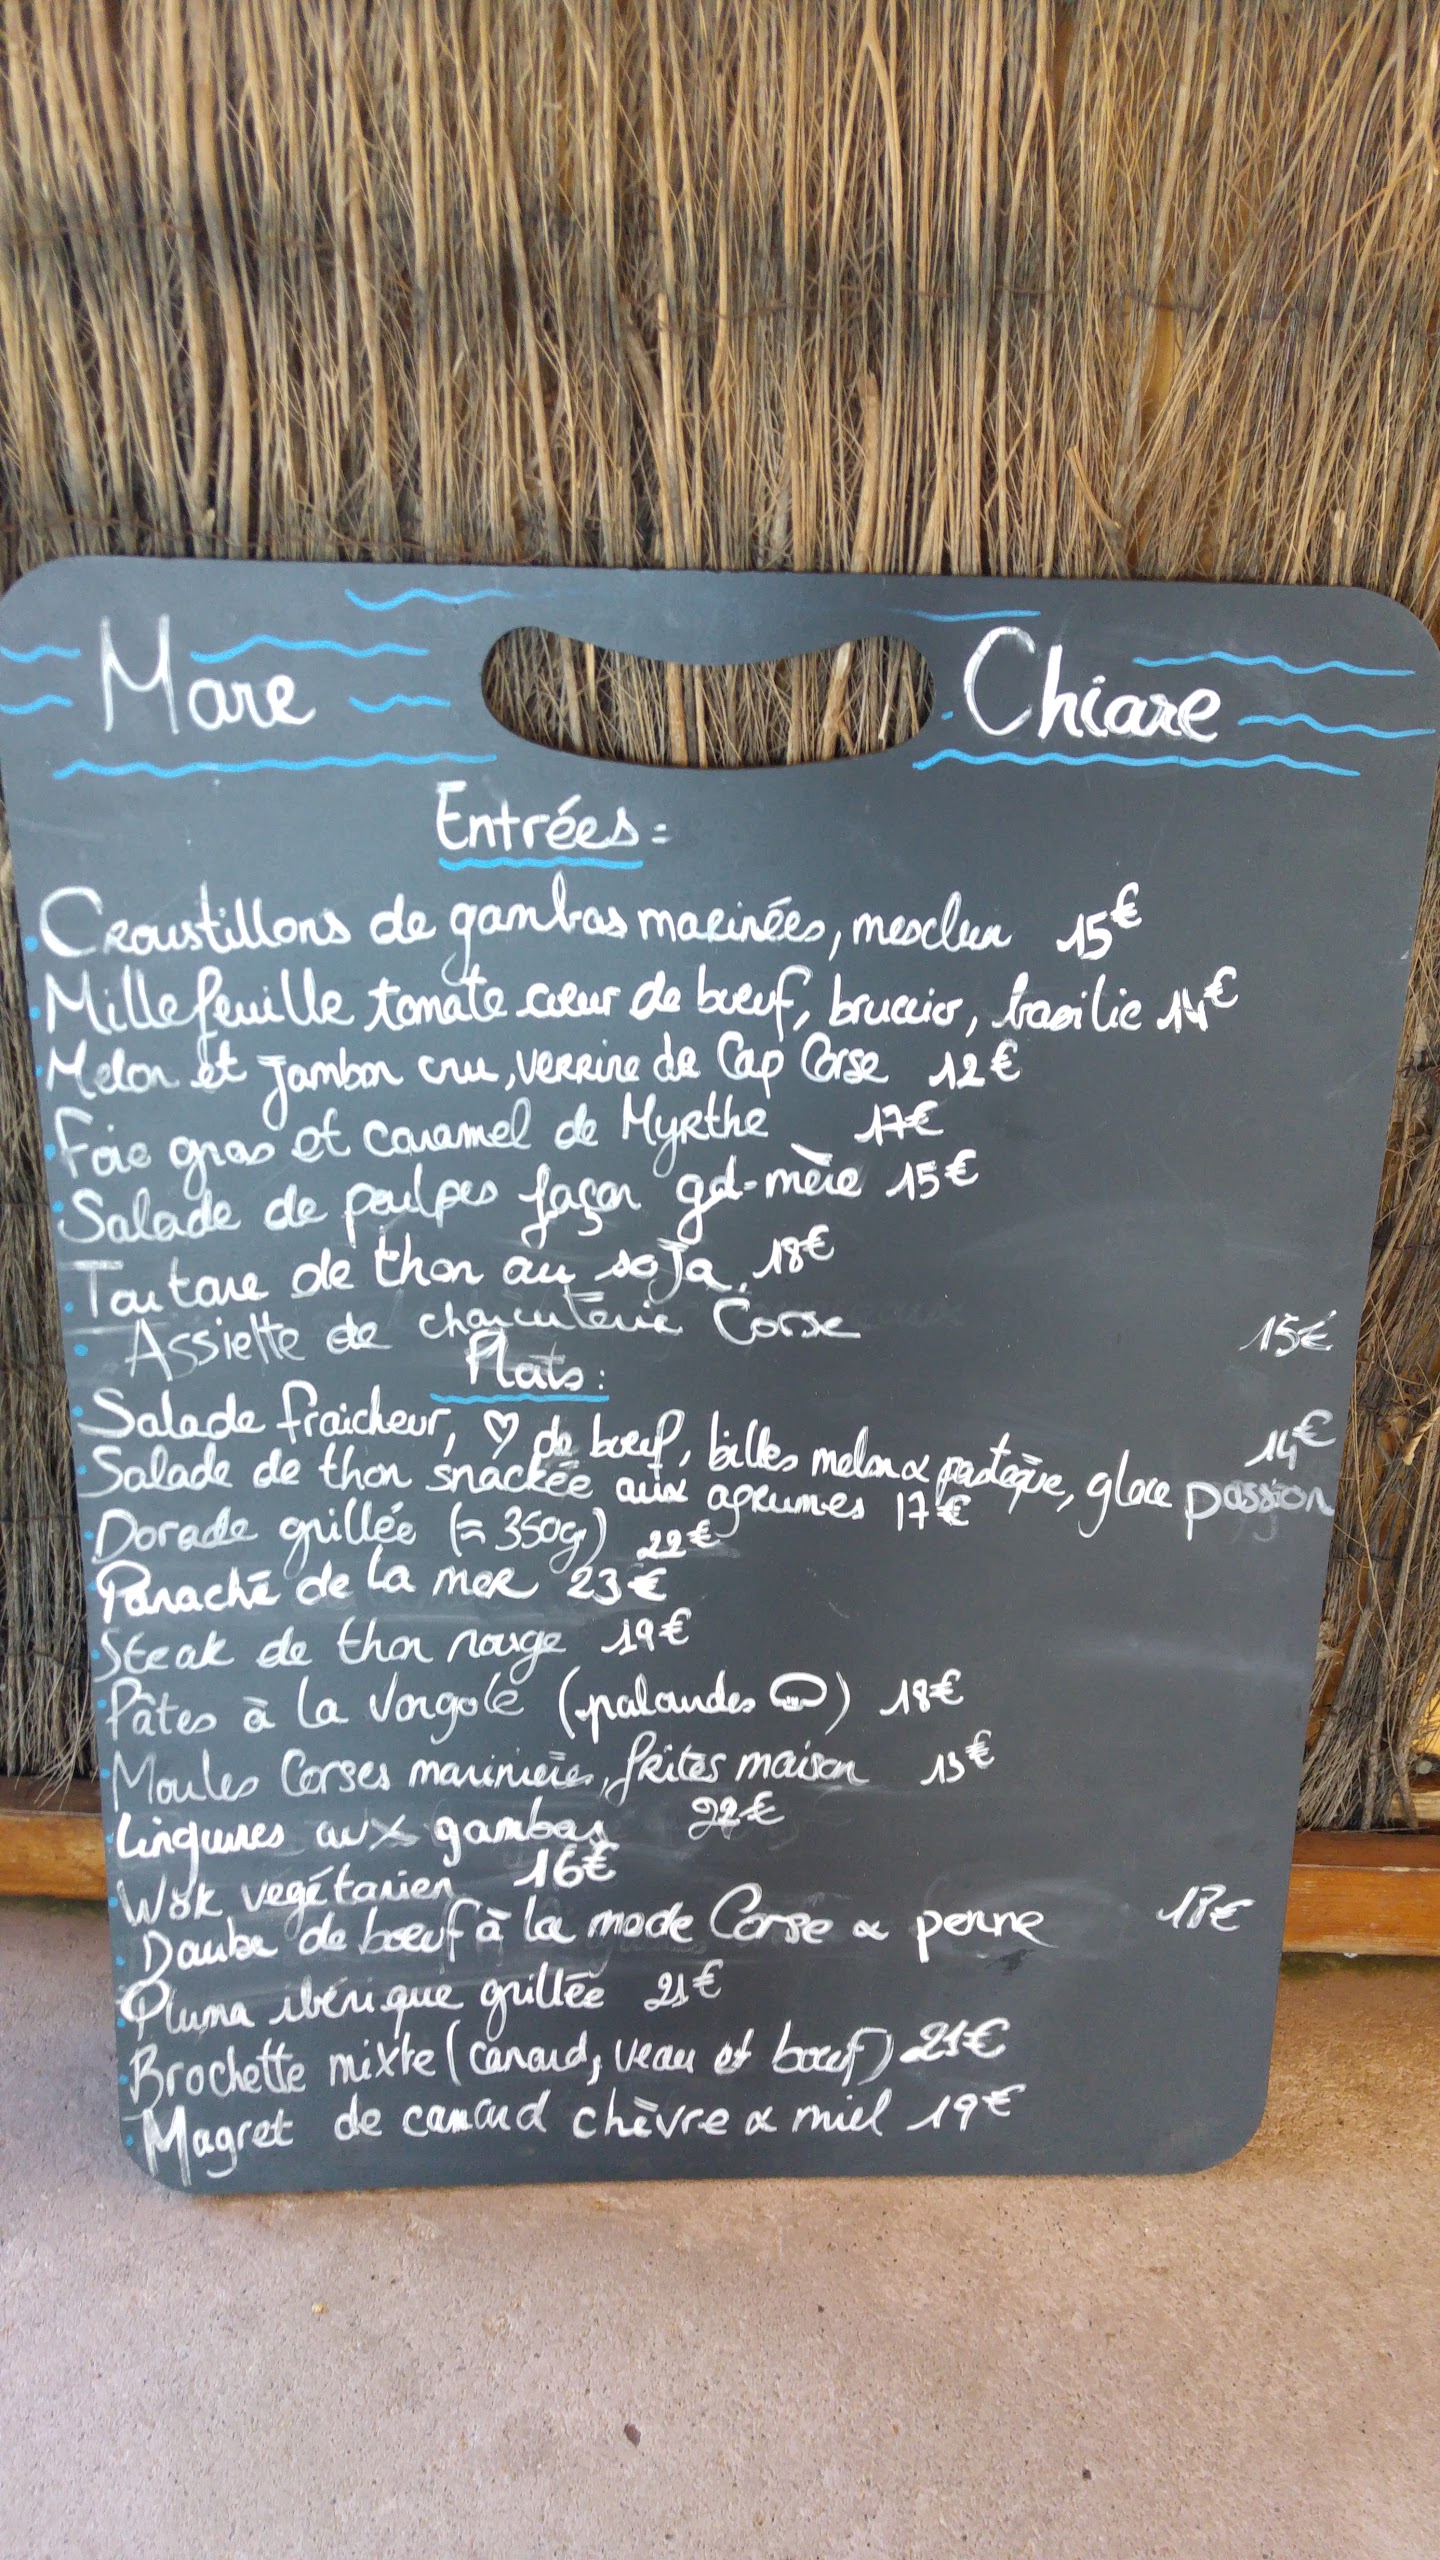 Mare Chiare
Entrées :
Croustillons de gambas marinées, mesclun 15€
Millefeuille tomate cœur de bœuf, bruccio, basilic 14€
Melon et jambon cru, verrine de Cap Corse 12€
Foie gras et caramel de Myrthe 17€
Salade de poulpes façon gd-mère 15€
Tartare de thon au soja 18€
Assiette de charcuterie Corse 15€
Plats :
Salade fraicheur, ♡ de bœuf, billes melon & pastèque, glace passion 14€
Salade de thon snackée aux agrumes 17€
Dorade grillée (≈ 350g) 22€
Panaché de la mer 23€
Steak de thon rouge 19€
Pâtes à la Vongole (palourdes) 18€
Moules Corses marinière, frites maison 13€
Linguines aux gambas 22€
Wok végétarien 16€
Daube de bœuf à la mode Corse & penne 18€
Pluma ibérique grillée 21€
Brochette mixte (canard, veau et bœuf) 21€
Magret de canard chèvre & miel 19€